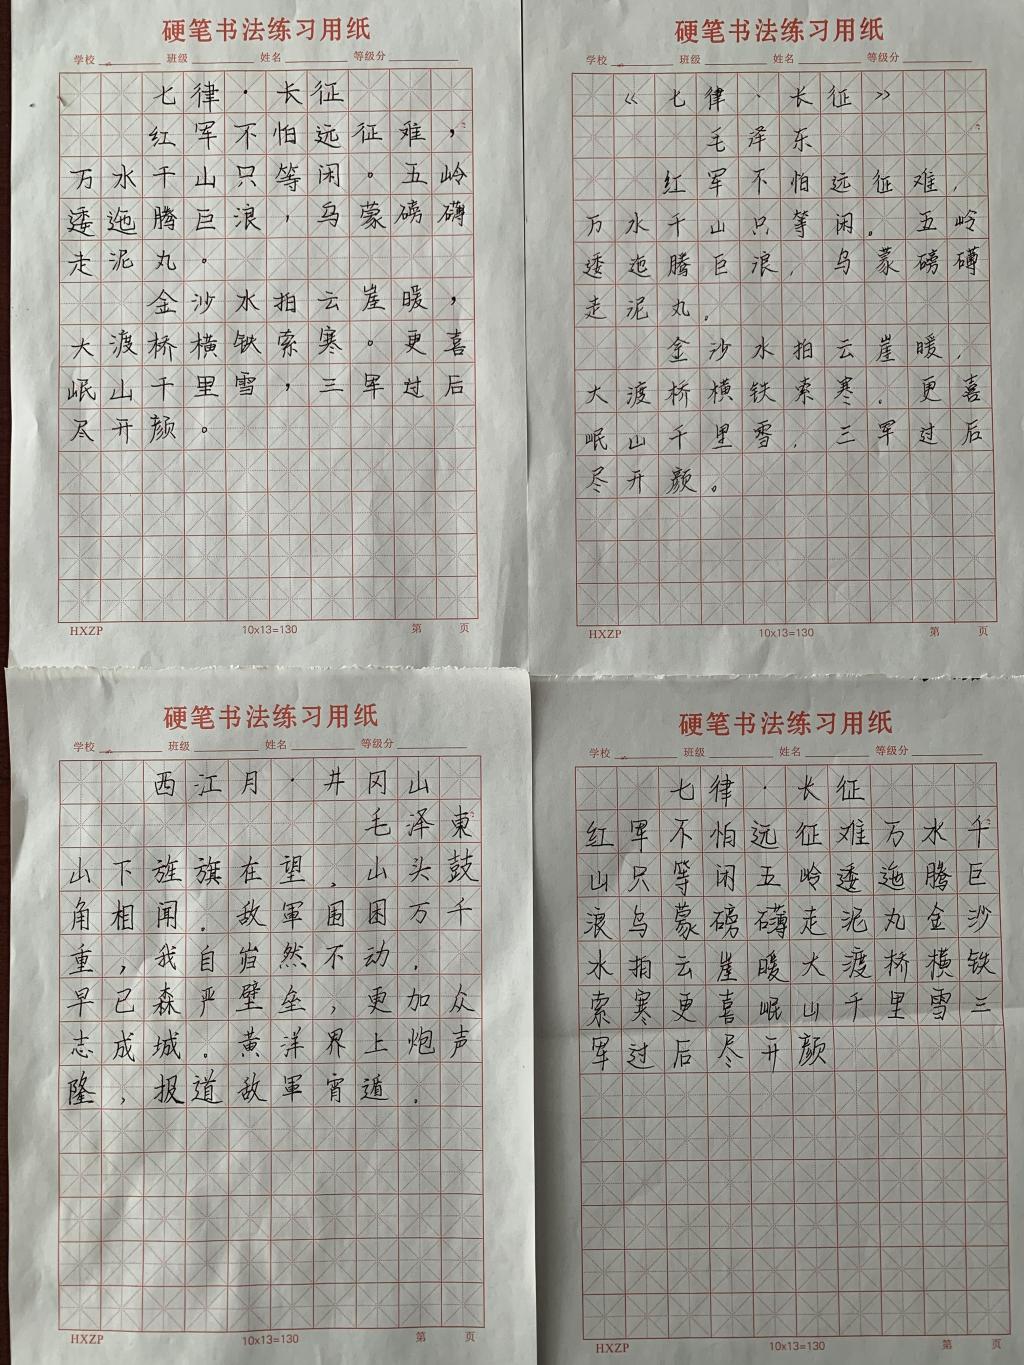 硬笔书法练习用纸
学校 班级 姓名 等级分
七律·长征
红军不怕远征难，
万水千山只等闲。五岭
逶迤腾巨浪，乌蒙磅礴
走泥丸。
金沙水拍云崖暖，
大渡桥横铁索寒。更喜
岷山千里雪，三军过后
尽开颜。
HXZP 10x13=130 第 页
硬笔书法练习用纸
学校 班级 姓名 等级分
《七律·长征》
毛泽东
红军不怕远征难，
万水千山只等闲。五岭
逶迤腾巨浪，乌蒙磅礴
走泥丸。
金沙水拍云崖暖，
大渡桥横铁索寒.更喜
岷山千里雪，三军过后
尽开颜。
HXZP 10x13=130 第 页
硬笔书法练习用纸
学校 班级 姓名 等级分
西江月·井冈山
毛泽東
山下旌旗在望，山头鼓
角相闻.敌軍围困万千
重，我自岿然不动.
早已森严壁垒，更加众
志成城。黄洋界上炮声
隆，报道敌軍宵遁.
HXZP 10x13=130 第 页
硬笔书法练习用纸
学校 班级 姓名 等级分
七律·长征
红军不怕远征难万水千
山只等闲五岭逶迤腾巨
浪乌蒙磅礴走泥丸金沙
水拍云崖暖大渡桥横铁
索寒更喜岷山千里雪三
军过后尽开颜
HXZP 10x13=130 第 页